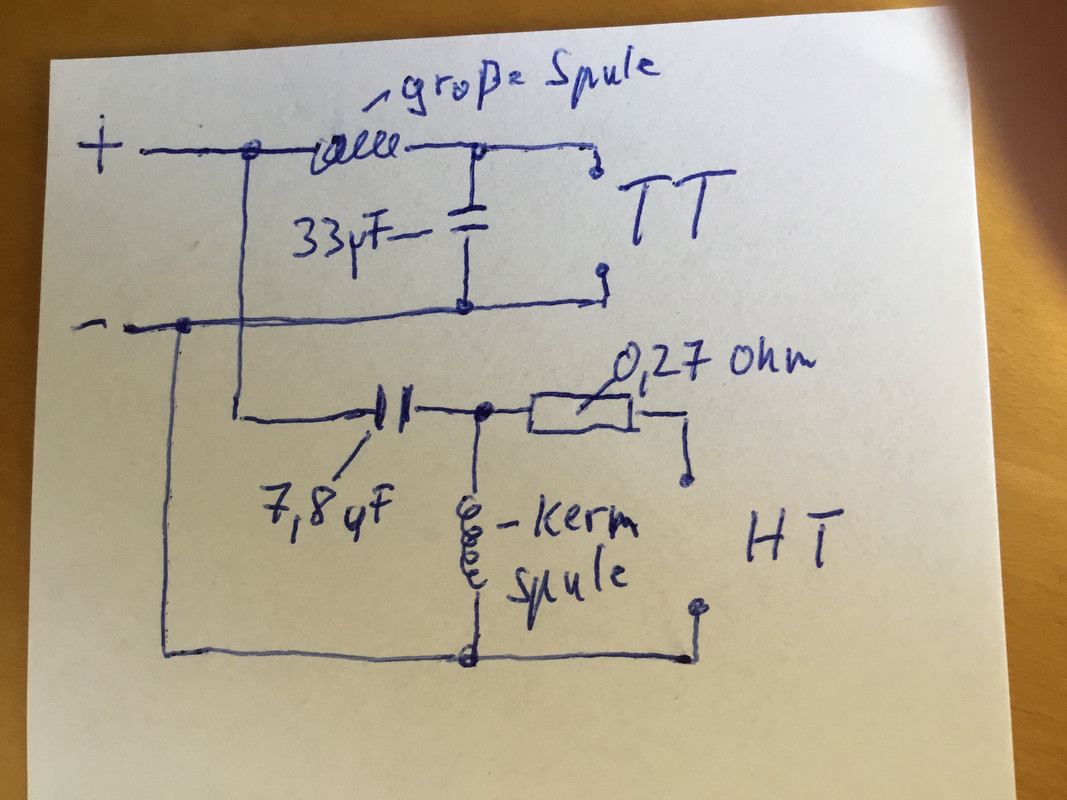 große Spule
+
TT
33µF
-
0,27 Ohm
7,8 µF
Kern
spule
HT